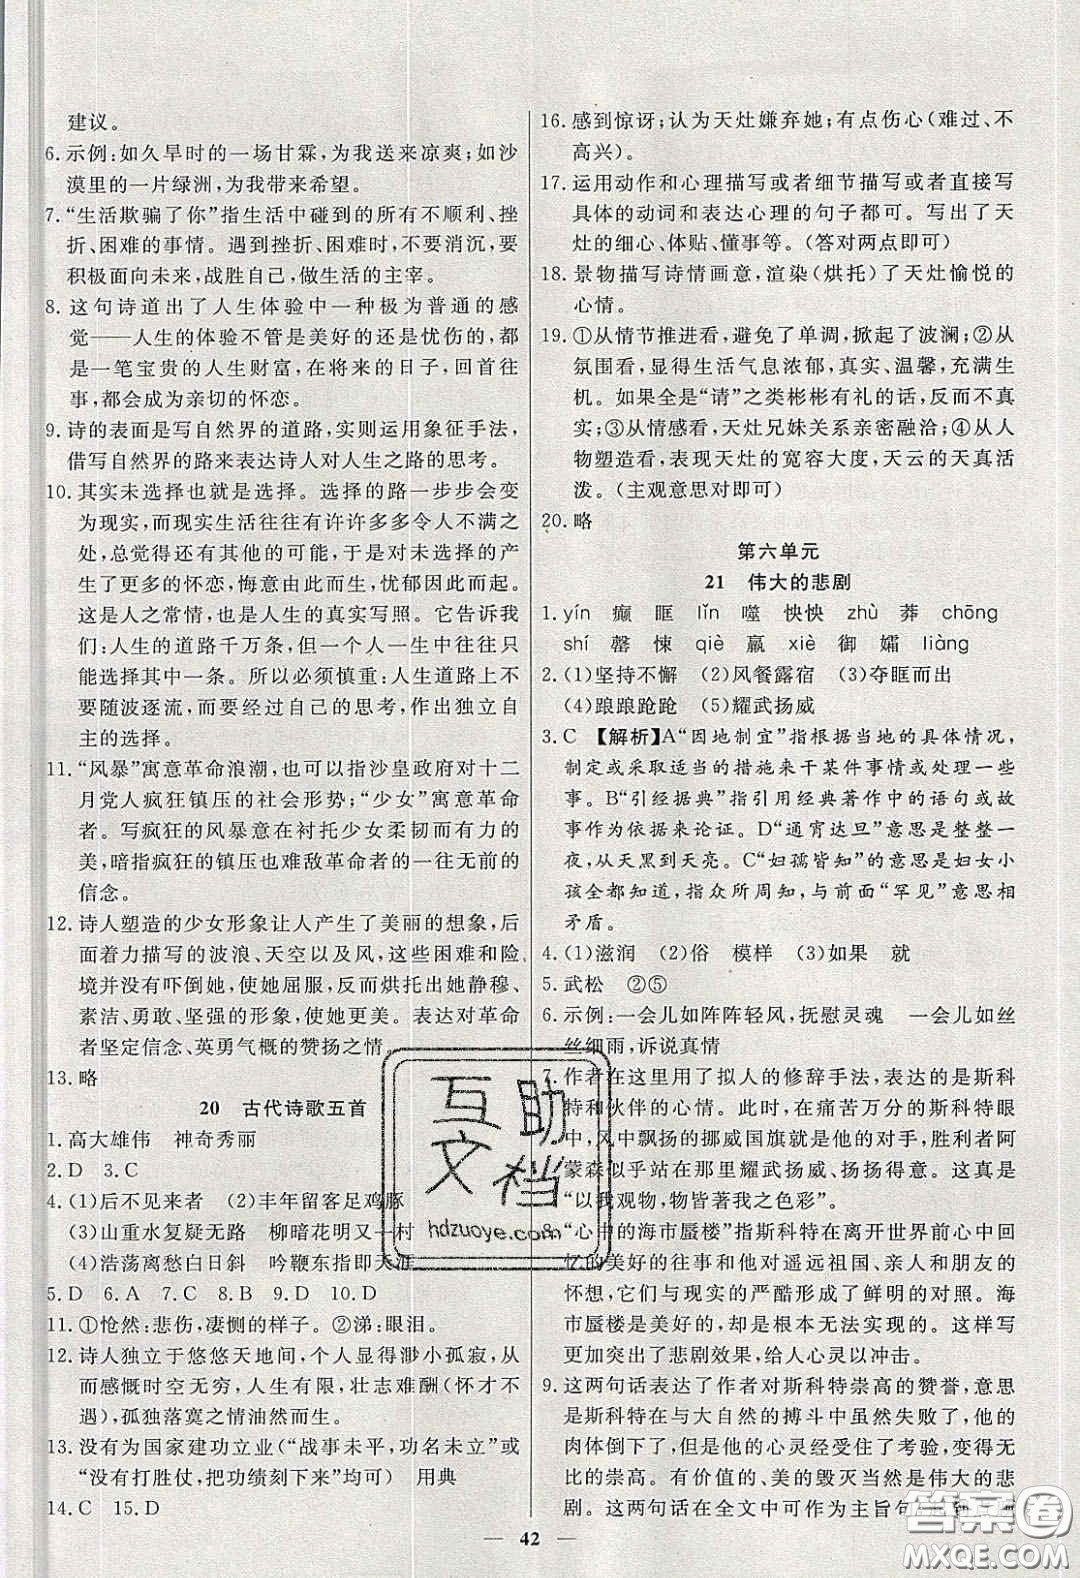 建议。
6. 示例:如久旱时的一场甘霖,为我送来凉爽;如沙
漠里的一片绿洲,为我带来希望。
7. “生活欺骗了你”指生活中碰到的所有不顺利、挫
折、困难的事情。遇到挫折、困难时,不要消沉,要
积极面向未来,战胜自己,做生活的主宰。
8. 这句诗道出了人生体验中一种极为普通的感
觉——人生的体验不管是美好的还是忧伤的,都
是一笔宝贵的人生财富,在将来的日子,回忆往
事,都会成为亲切的怀恋。
9. 诗的表面是写自然界的道路,实则运用象征手法,
借写自然界的路来表达诗人对人生之路的思考。
10. 其实未选择也就是选择。选择的路一步步会变
为现实,而现实生活往往有许许多多令人不满之
处,总觉得还有其他的可能,于是对未选择的产
生了更多的怀恋,悔意由此而生,感慨由此而发,
这是人之常情,也是人生的真实写照。它告诉我
们:人生的道路千万条,但一个人一生中往往只
能选择其一。所以必须慎重;人生道路上不要
随波逐流,而要经过自己的思考,作出独立自
主的选择。
11. “风暴”寓意革命浪潮,也可以指沙皇政府对十二
月党人疯狂镇压的社会形势;“少女”寓意革命
者。写疯狂的风暴意在衬托少女柔韧而有力的
美,暗指疯狂的镇压也难敌革命者的一往无前的
信念。
12. 诗人塑造的少女形象让人产生了美丽的想象,后
面着力描写的波浪、天空以及风,这些困难和险
境并没有吓倒她,使她屈服,反而烘托出她静穆、
素洁、勇敢、坚强的形象,使她更美。表达对革命
者坚定信念、英勇气概的赞扬之情。
13. 略
20 古代诗歌五首
1. 高大雄伟 神奇秀丽
2. D 3. C
4. (1)后不见来者 (2)丰年留客足鸡豚
(3)山重水复疑无路 柳暗花明又一村
(4)浩荡离愁白日斜 吟鞭东指即天涯
5. D 6. A 7. C 8. B 9. D 10. D
11. ①怆然:悲伤,凄恻的样子。②涕:眼泪。
12. 诗人独立于悠悠天地间,个人显得渺小孤寂,从
而感慨时空无穷,人生有限,壮志难酬(怀才不
遇),孤独落寞之情油然而生。
13. 没有为国家建功立业(“战事未平,功名未立”或
“没有打胜仗,把功绩刻下来”均可) 用典
14. C 15. D
16. 感到惊讶;认为天灶嫌弃她;有点伤心(难过、不
高兴)。
17. 运用动作和心理描写或者细节描写或者直接写
具体的动词和表达心理的句子都可。写出了天
灶的细心、体贴、懂事等。(答对两点即可)
18. 景物描写诗情画意,渲染(烘托)了天灶愉悦的
心情。
19. ①从情节推进看,避免了单调,掀起了波澜;②从
氛围看,显得生活气息浓郁,真实、温馨,充满生
机。如果全是“请”之类彬彬有礼的话,反而不真
实;③从情感看,天灶兄妹关系亲密融洽;④从人
物塑造看,表现天灶的宽容大度,天云的天真活
泼。(主观意思对即可)
20. 略
第六单元
21 伟大的悲剧
1. yín 癫 眶 lǐn 噬 怏怏 zhù 莽 chōng
shí 罄 悚 qiè 羸 xiè 御 孀 liàng
2. (1)坚持不懈 (2)风餐露宿 (3)夺眶而出
(4)踉踉跄跄 (5)耀武扬威
3. C 【解析】A“因地制宜”指根据当地的具体情况,
制定或采取适当的措施来干某件事情或处理一些
事。B“引经据典”指引用经典著作中的语句或故
事作为依据来论证。D“通宵达旦”意思是整整一
夜,从天黑到天亮。C“妇孺皆知”的意思是妇女小
孩全都知道,指众所周知,与前面“罕见”意思相
矛盾。
4. (1)滋润 (2)俗 模样 (3)如果 就
5. 武松 ②⑤
6. 示例:一会儿如阵阵轻风,抚慰灵魂 一会儿如丝
丝细雨,诉说真情
7. 作者在这里用了拟人的修辞手法,表达的是斯科
特和伙伴的心情。此时,在痛苦万分的斯科特眼
中,风中飘扬的挪威国旗就是他的对手,胜利者阿
蒙森似乎站在那里耀武扬威、扬扬得意。这真是
“以我观物,物皆著我之色彩”。
8. “心中的海市蜃楼”指斯科特在离开世界前心中回
忆的美好的往事和他对遥远祖国、亲人和朋友的
怀想,它们与现实的严酷形成了鲜明的对照。海
市蜃楼是美好的,却是根本无法实现的。这样写
突出了悲剧效果,给人心灵以冲击。
9. 这两句话表达了作者对斯科特崇高的赞誉,意思
是斯科特在与大自然的搏斗中虽然失败了,他的
肉体倒下了,但他的心灵经受住了考验,变得无
比的崇高。有价值的、美的毁灭当然是伟大的悲
剧。这两句话在全文中可作为主旨句
42
互助文档
hdzuoye.com
答案圈
MXQE.COM